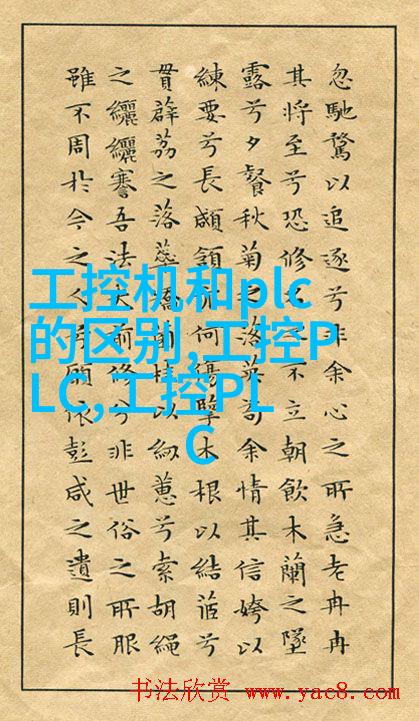 忽馳騖以追逐兮非余心之所急老冉冉
其將至兮恐修名之不立朝飲木蘭之墜
露兮夕餐秋菊之落英苟余情其信姱以
練要兮長顑頷亦何傷擥木根以結茝兮
貫薜荔之落蕊矯菌桂以紉蕙兮索胡繩
之纚纚謇吾法夫前修兮非世俗之所服
雖不周於今之人兮願依彭咸之遺則長
工控机和plc
的区别,工控P
LC,工控PL
C
书法欣赏 www.yac8.com